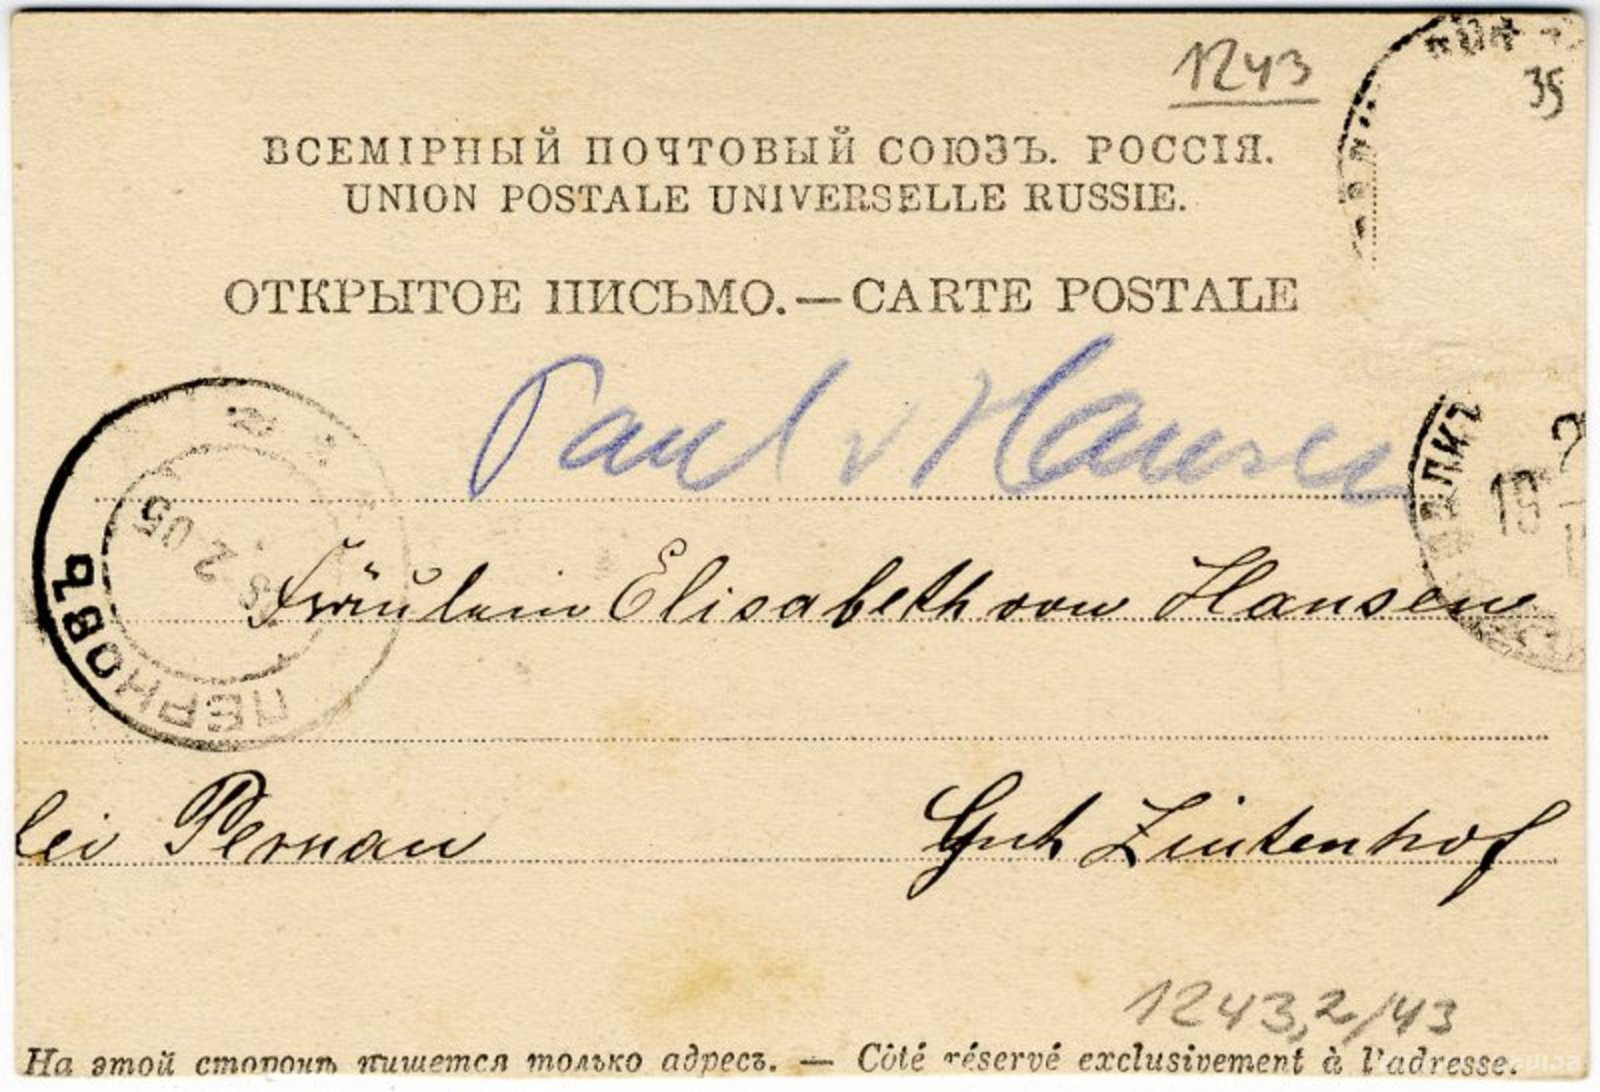 1243
35
ВСЕМІРНЫЙ ПОЧТОВЫЙ СОЮЗЪ. РОССІЯ.
UNION POSTALE UNIVERSELLE RUSSIE.
ОТКРЫТОЕ ПИСЬМО.—CARTE POSTALE
Paul v Hansen
ПЕРНОВЪ
8 2 05
19
Fräulein Elisabeth von Hansen
bei Pernau Gut Zintenhof
1243,2/43
На этой сторонѣ пишется только адресъ. — Côté réservé exclusivement à l'adresse.